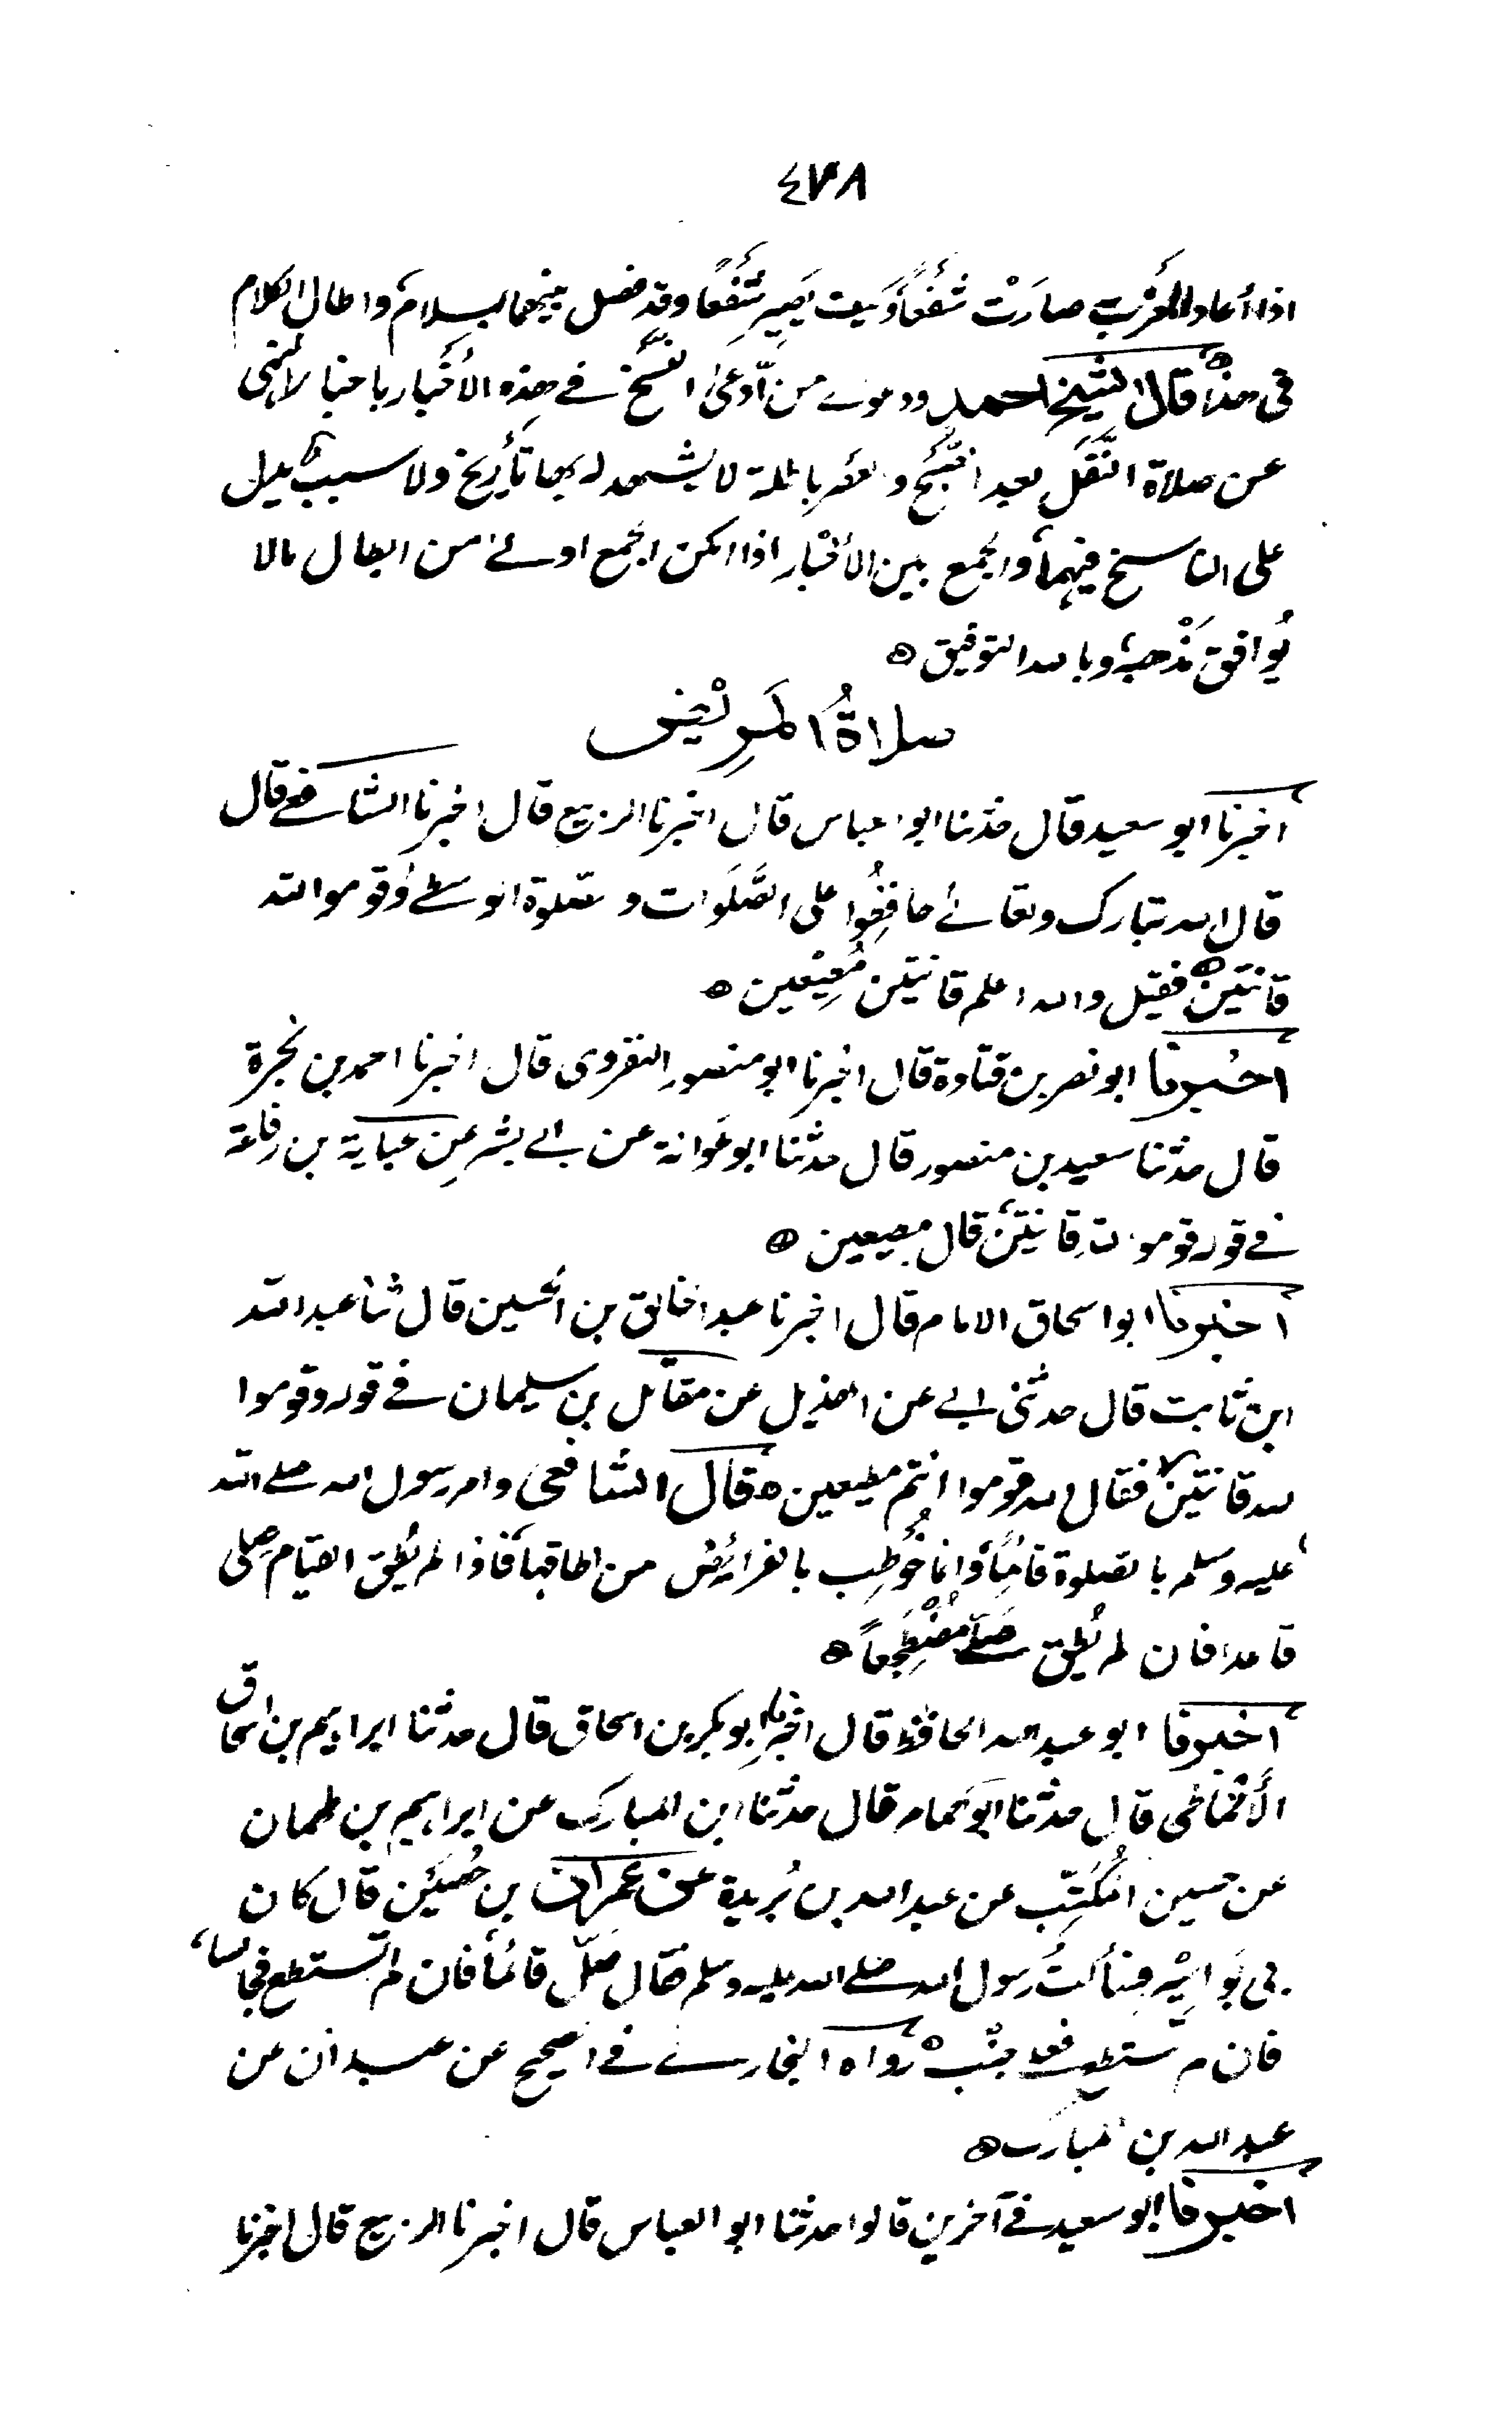 ٤٧٨
اذا أعاد المغرب صارَتْ شفعًا وكيف يَصِير شَفعًا وقد فصل بينهما بسلام واطال الكلام
في هذا قال الشيخ احمد ودعوى من ادّعى النسخ في هذه الأخبار باخبار النهى
عن صلاة النَّفل بعد الصّبح والعصر باطلة لا يشهد له بها تأريخ ولا سبب يدل
على الناسخ فيهما والجمع بين الأخبار اذا امكن الجمع اولى من ابطال مالا
يُوافق مَذْهبه وبالله التوفيق
صلاةُ المَرِيْض
اخبرنا ابو سعيد قال حدثنا ابو العباس قال اخبرنا الربيع قال اخبرنا الشافعي قال
قال الله تبارك وتعالى حافظُوا على الصَّلَوات والصلوة الوسطى وقوموا لله
قانتين فقيل والله اعلم قانتين مُطِيْعين
اخبرنا ابو نصر بن قتادة قال اخبرنا ابو منصور النضروى قال اخبرنا احمد بن نجدة
قال حدثنا سعيد بن منصور قال حدثنا ابو عَوانة عن ابي بشر عن عباية بن رفاعة
في قوله قوموا لله قانتين قال مطيعين
اخبرنا ابو اسحاق الامام قال اخبرنا عبد الخالق بن الحسين قال ثنا عبد الله
ابن ثابت قال حدثنى ابي عن الهذيل عن مقاتل بن سليمان في قوله وقوموا
لله قانتين فقال لله قوموا انتم مطيعين قال الشافعي وامر رسول الله صلى الله
عليه وسلم بالصلوة قائمًا وانما خُوطِب بالفرائض من اطاقها فاذا لم يُطِق القيام صلى
قاعدا فان لم يُطِق صلى مُضْطَجعاً
اخبرنا ابو عبد الله الحافظ قال اخبرنا ابو بكر بن اسحاق قال حدثنا ابراهيم بن اسحاق
الأنماطى قال حدثنا ابو همام قال حدثنا ابن المبارك عن ابراهيم بن طهمان
عن حسين المُكتِّب عن عبد الله بن بُريدة عن عمران بن حُصَيْن قال كان
بى بَواسِيْر فسألتُ رسول الله صلى الله عليه وسلم فقال صَلّ قائمًا فان لم تستطع فجالسا
فان لم تستطع فعلى جَنْب رواه البخاري في الصحيح عن عبدان عن
عبد الله بن المبارك
اخبرنا ابو سعيد في آخرين قالوا حدثنا ابو العباس قال اخبرنا الربيع قال اخبرنا